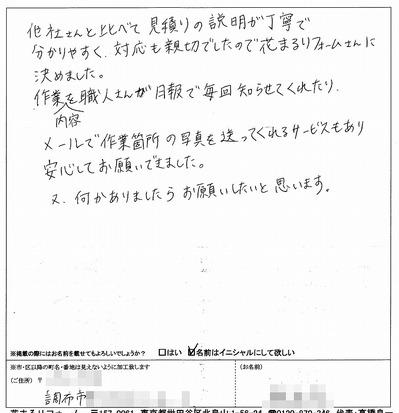 他社さんと比べて見積りの説明が丁寧で
分かりやすく、対応も親切でしたので花まるリフォームさんに
決めました。
作業内容を職人さんが月報で毎回知らせてくれたり、
メールで作業箇所の写真を送ってくれるサービスもあり
安心してお願いできました。
又、何かありましたらお願いしたいと思います。
※掲載の際にはお名前を載せてもよろしいでしょうか？ □はい ☑名前はイニシャルにして欲しい
※市・区以降の町名・番地は見えないように加工致します
（お名前）
（ご住所） 〒
調布市
花まるリフォーム 〒157-0061 東京都世田谷区北烏山1-56-24 ☎0120-870-246 代表：高橋良一